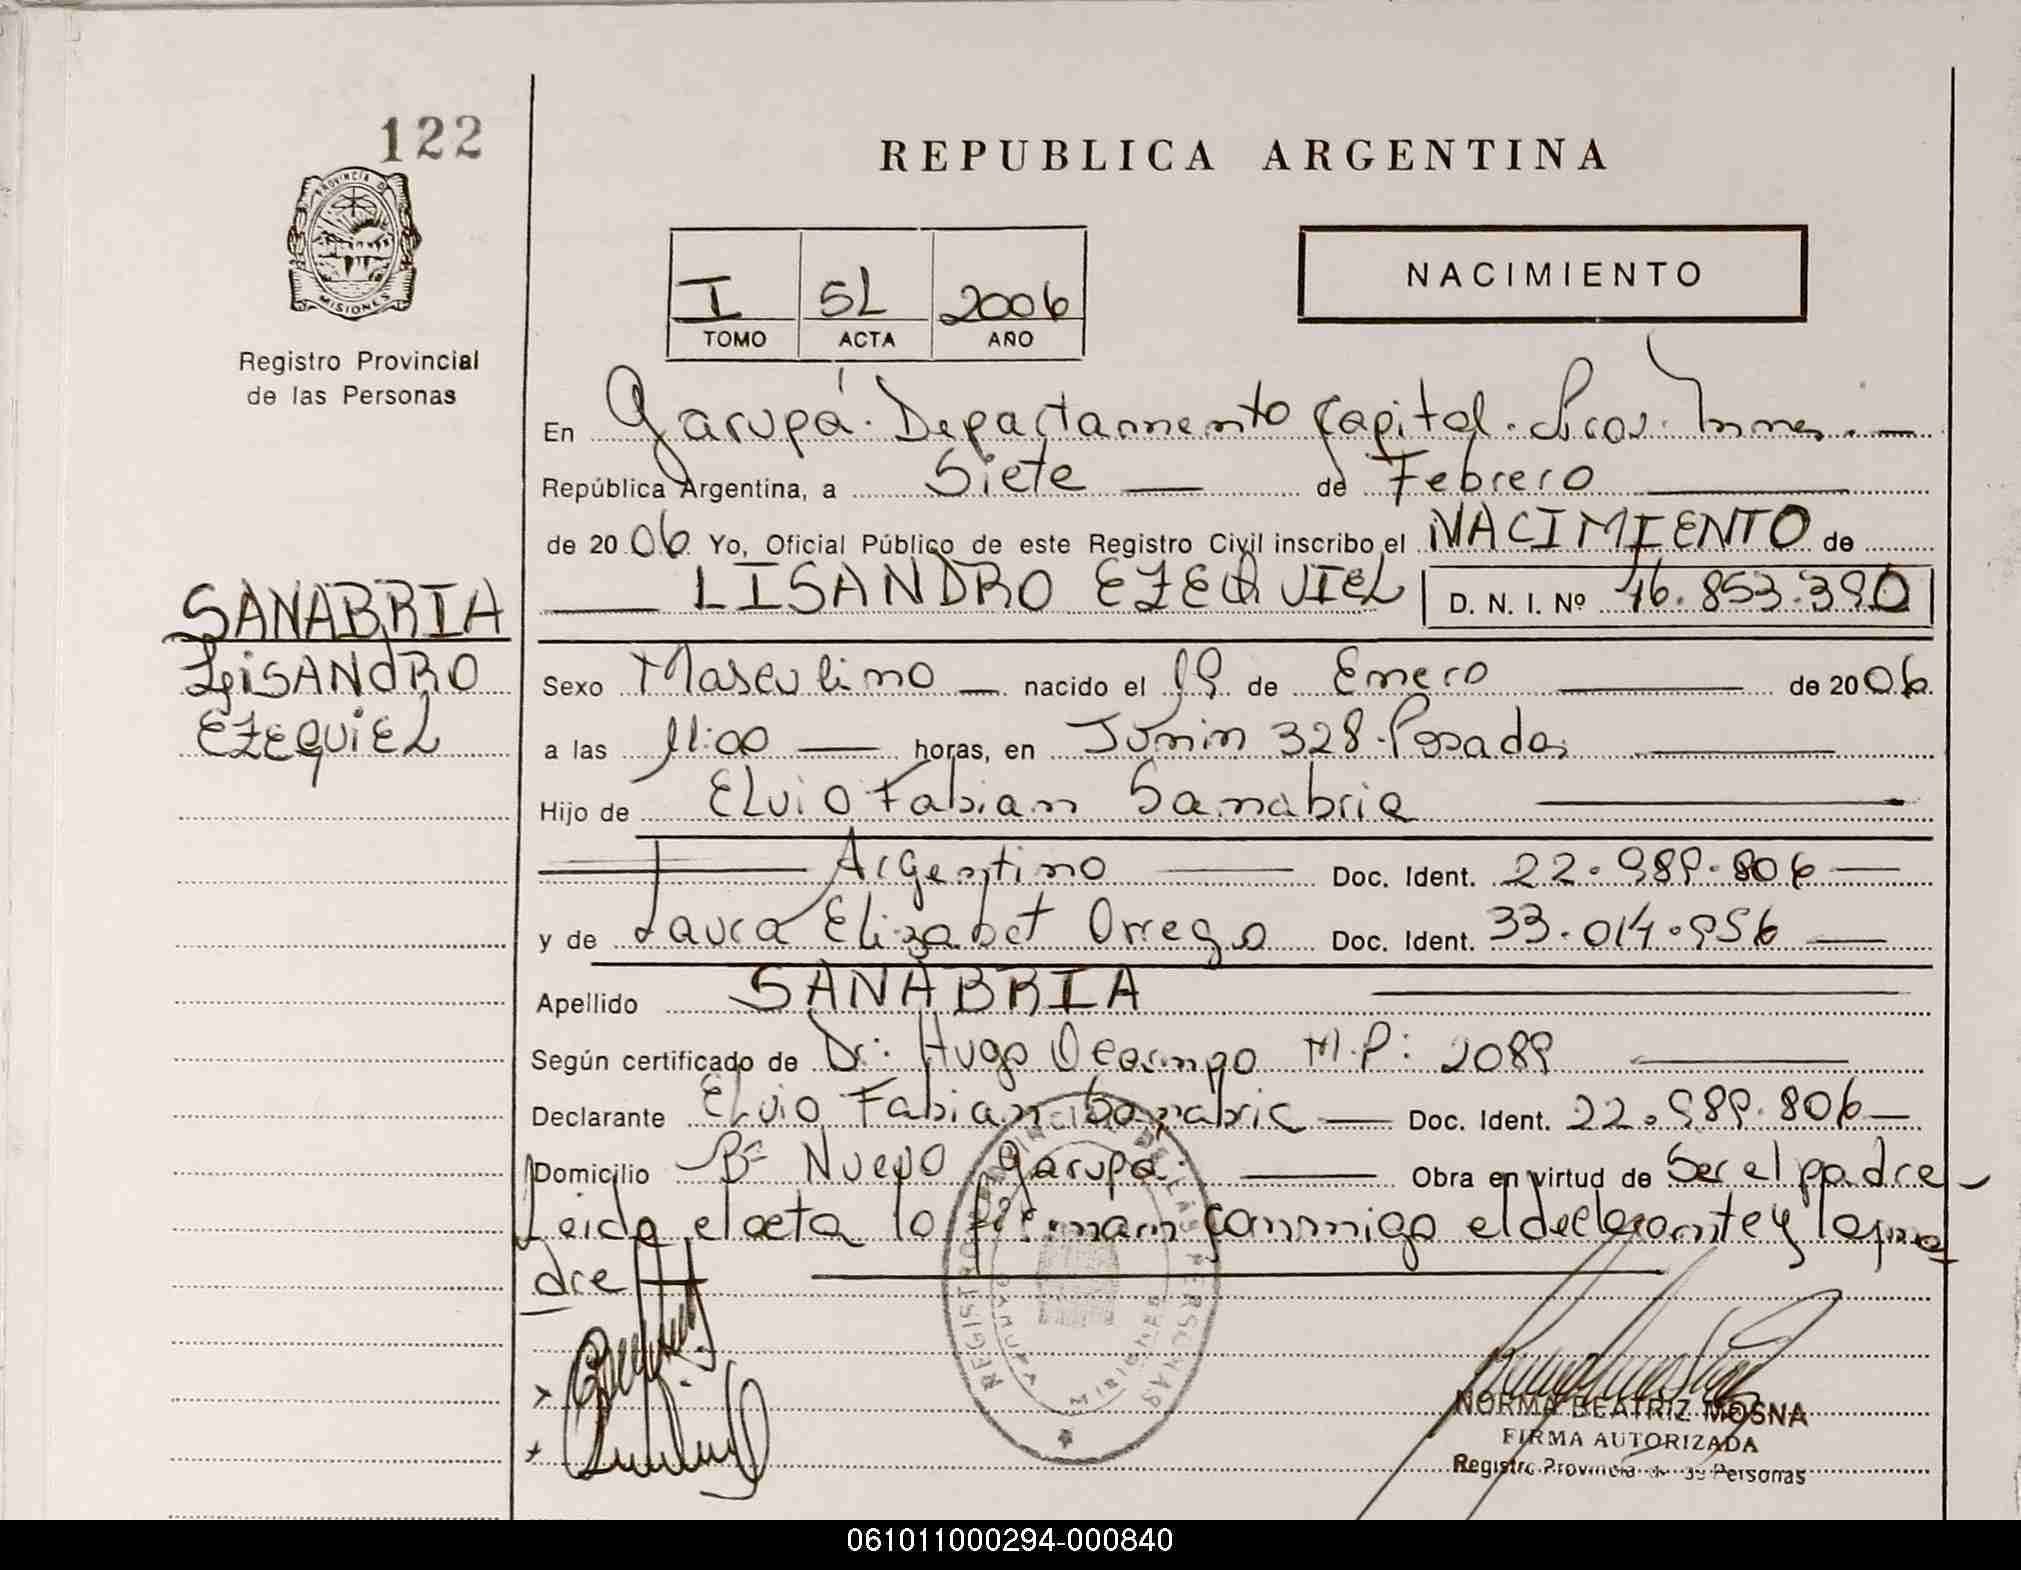 122
REPUBLICA ARGENTINA
PROVINCIA D
MISIONES
NACIMIENTO
I 51 2006
TOMO ACTA AÑO
Registro Provincial
de las Personas
En Garupá. Departamento Capital. Pcia. Mnes.
República Argentina, a Siete de Febrero
de 2006 Yo, Oficial Público de este Registro Civil inscribo el NACIMIENTO de
LISANDRO EZEQUIEL D. N. I. Nº 46.853.390
SANABRIA
LiSANdRO
EZEQUIEL
Sexo Masculino nacido el 19 de Enero de 2006
a las 11:00 horas, en Junin 328-Posadas
Hijo de Elvio Fabian Sanabria
Argentino Doc. Ident. 22.989.806
y de Laura Elizabet Orrego Doc. Ident. 33.014.956
Apellido SANABRIA
Según certificado de Dr: Hugo Ocampo M.P: 2089
Declarante Elvio Fabian Sanabria Doc. Ident. 22.989.806
Domicilio Bº Nuevo Garupa. Obra en virtud de Ser el padre
Leida el acta lo firman conmigo el declarante y la ma
dre
REGISTRO PROVINCIAL DE LAS PERSONAS
GARUPA MISIONES
NORMA BEATRIZ MOSNA
FIRMA AUTORIZADA
Registro Provincial de las Personas
061011000294-000840